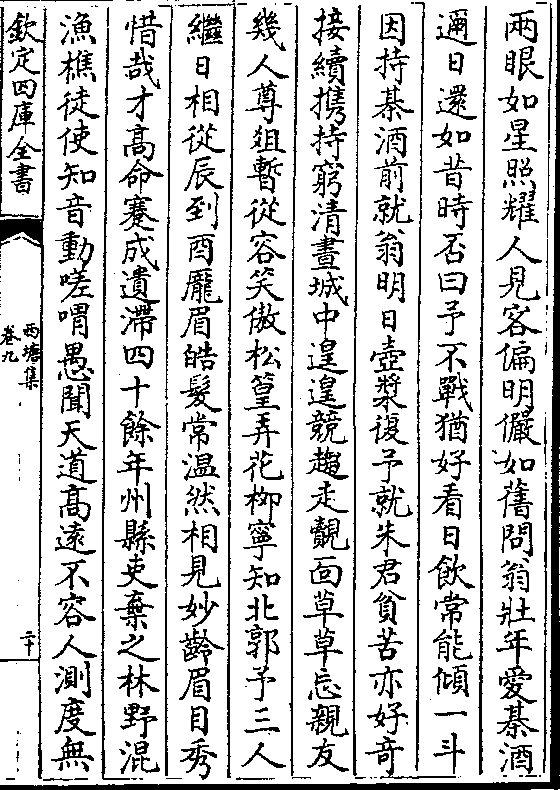 兩眼如星照耀人見客偏明儼如舊問翁壯年愛棊酒
邇日還如昔時否曰予不戰猶好看日飲常能傾一斗
因持棊酒前就翁明日壺漿復予就朱君貧苦亦好奇
接續携持窮清晝城中遑遑競趨走靦面草草忘親友
幾人尊俎暫從容笑傲松篁弄花栁寧知北郭予三人
繼日相從辰到酉龎眉皓髮常温然相見妙齡眉目秀
惜哉才髙命蹇成遺滯四十餘年州縣吏棄之林野混
漁樵徒使知音動嗟喟愚聞天道髙遠不容人測度無
欽定四庫全書
西塘集
卷九
二十